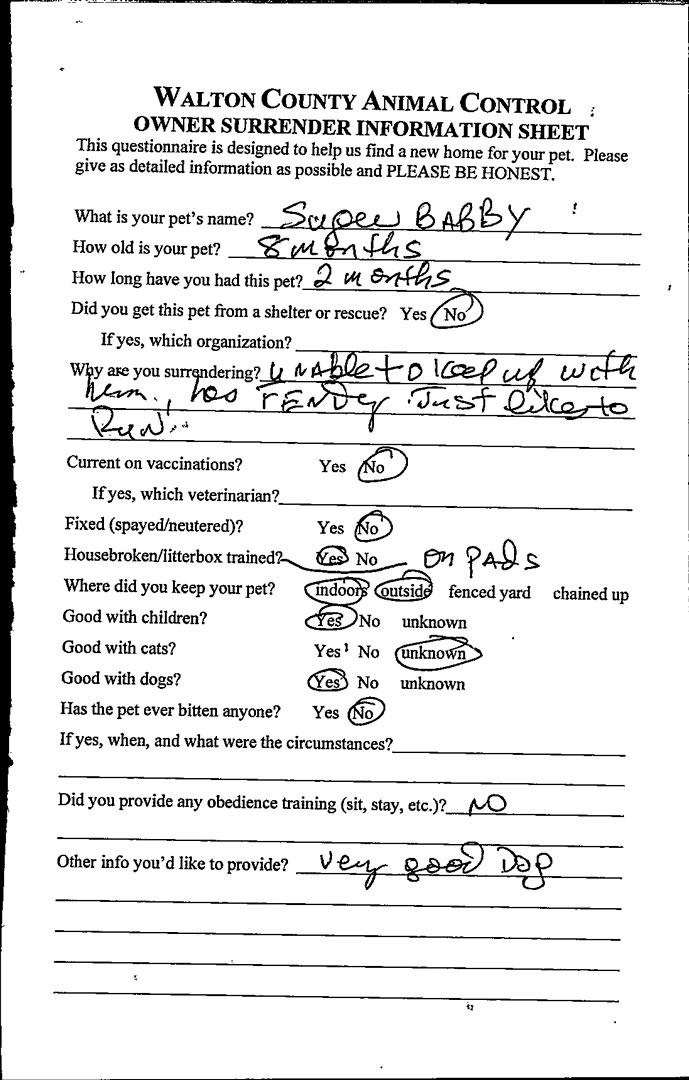 WALTON COUNTY ANIMAL CONTROL
OWNER SURRENDER INFORMATION SHEET
This questionnaire is designed to help us find a new home for your pet. Please
give as detailed information as possible and PLEASE BE HONEST.
What is your pet's name? Super BABBY
How old is your pet? 8 months
How long have you had this pet? 2 months
Did you get this pet from a shelter or rescue? Yes No
If yes, which organization?
Why are you surrendering? unable to keep up with
him, has Just like to
Run
Current on vaccinations? Yes No
If yes, which veterinarian?
Fixed (spayed/neutered)? Yes No
Housebroken/litterbox trained? Yes No on PAds
Where did you keep your pet? indoors outside fenced yard chained up
Good with children? Yes No unknown
Good with cats? Yes No unknown
Good with dogs? Yes No unknown
Has the pet ever bitten anyone? Yes No
If yes, when, and what were the circumstances?
Did you provide any obedience training (sit, stay, etc.)? NO
Other info you'd like to provide? Very good Dog